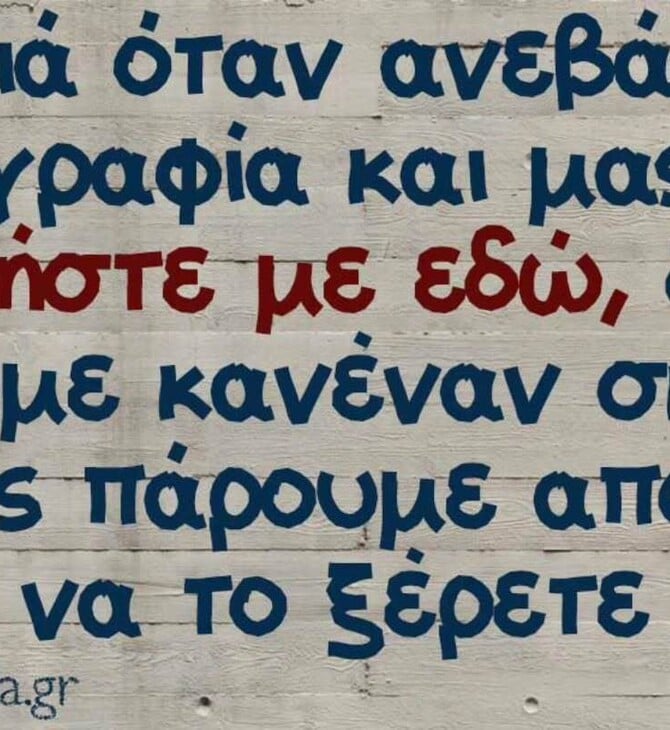 ιά όταν ανεβά
γραφία και μας
ήστε με εδώ,
με κανέναν
ς πάρουμε απ
να το ξέρετε
a.gr